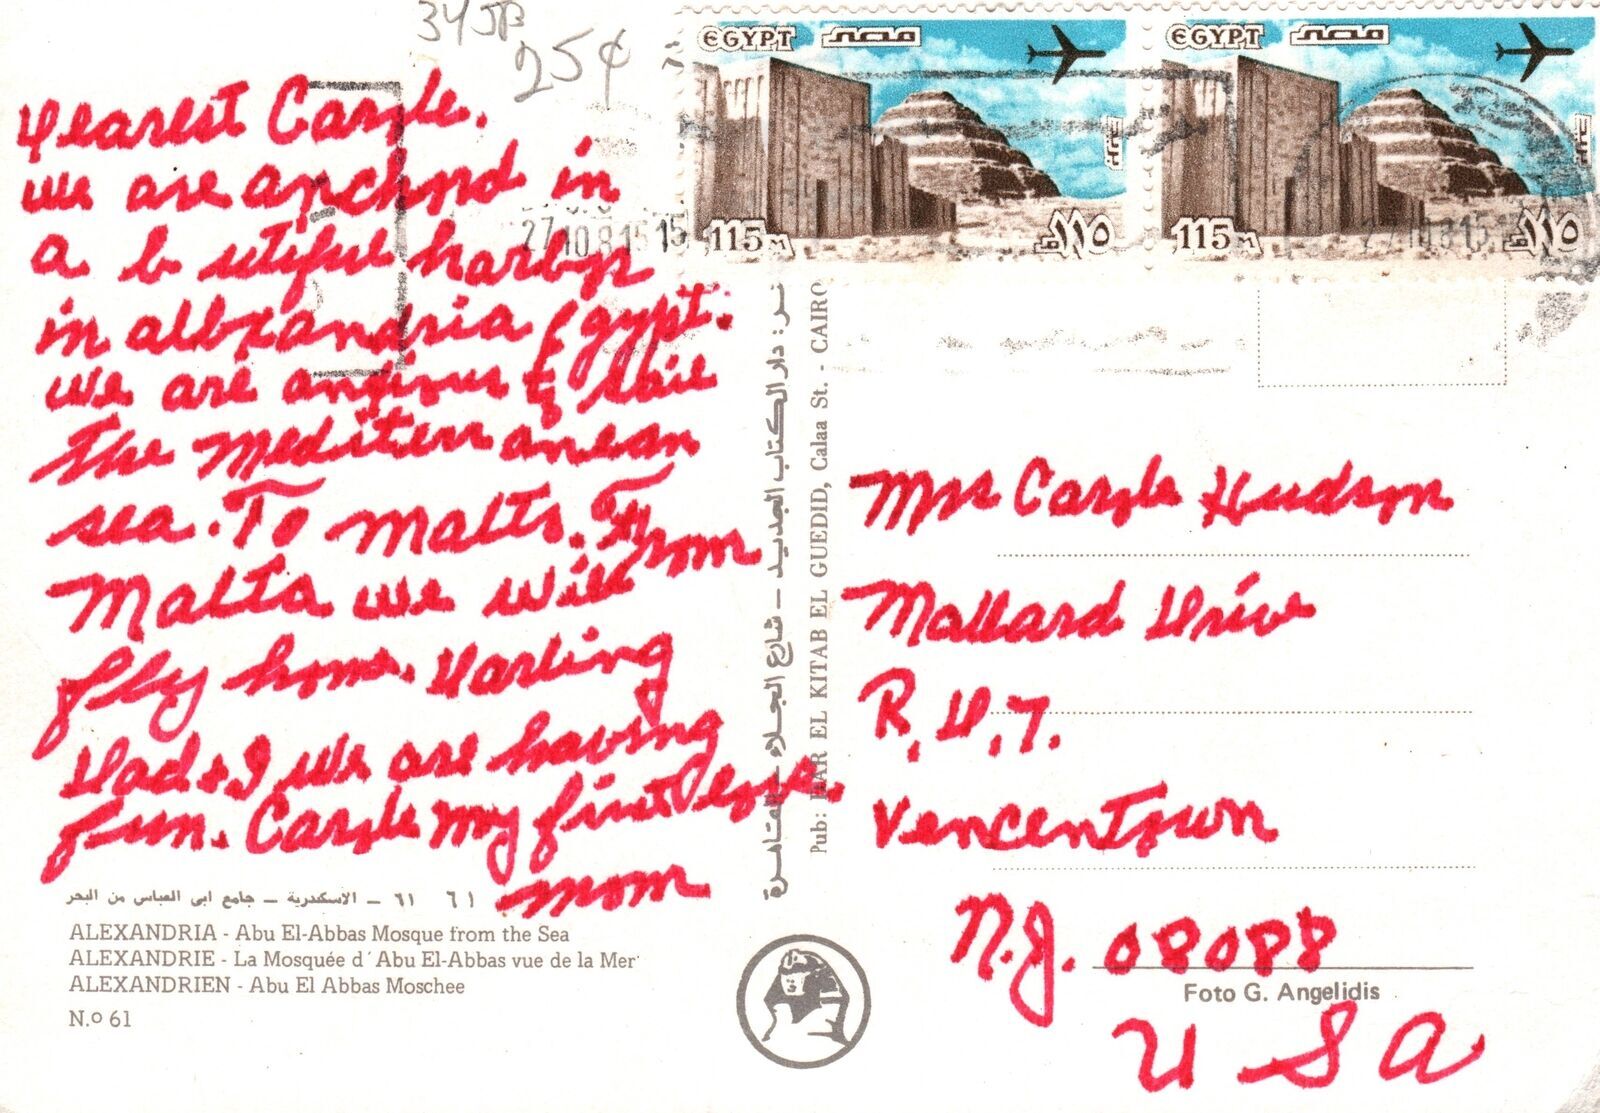 34JB
25¢
EGYPT مصر
115 M ١١٥
EGYPT مصر
115 M ١١٥
27.10.81 15 15
Dearest Carole.
we are anchord in
a b utiful harbor
in alexandria Egypt.
we are anxious to sail
the mediterranean
sea. To Malta. From
Malta we will
fly home. Darling
Dad & I we are having
fun. Carole my first love.
mom
Mrs Carole Hudson
Mallard Drive
R.D.7.
Vencentown
N.J. 08088
USA
دار الكتاب الجديد – شارع الجلاء – القاهرة
Pub: DAR EL KITAB EL GUEDID, Calaa St. - CAIRO
٦١ ٦١ – الاسكندرية – جامع ابى العباس من البحر
ALEXANDRIA - Abu El-Abbas Mosque from the Sea
ALEXANDRIE - La Mosquée d'Abu El-Abbas vue de la Mer
ALEXANDRIEN - Abu El Abbas Moschee
N.º 61
Foto G. Angelidis